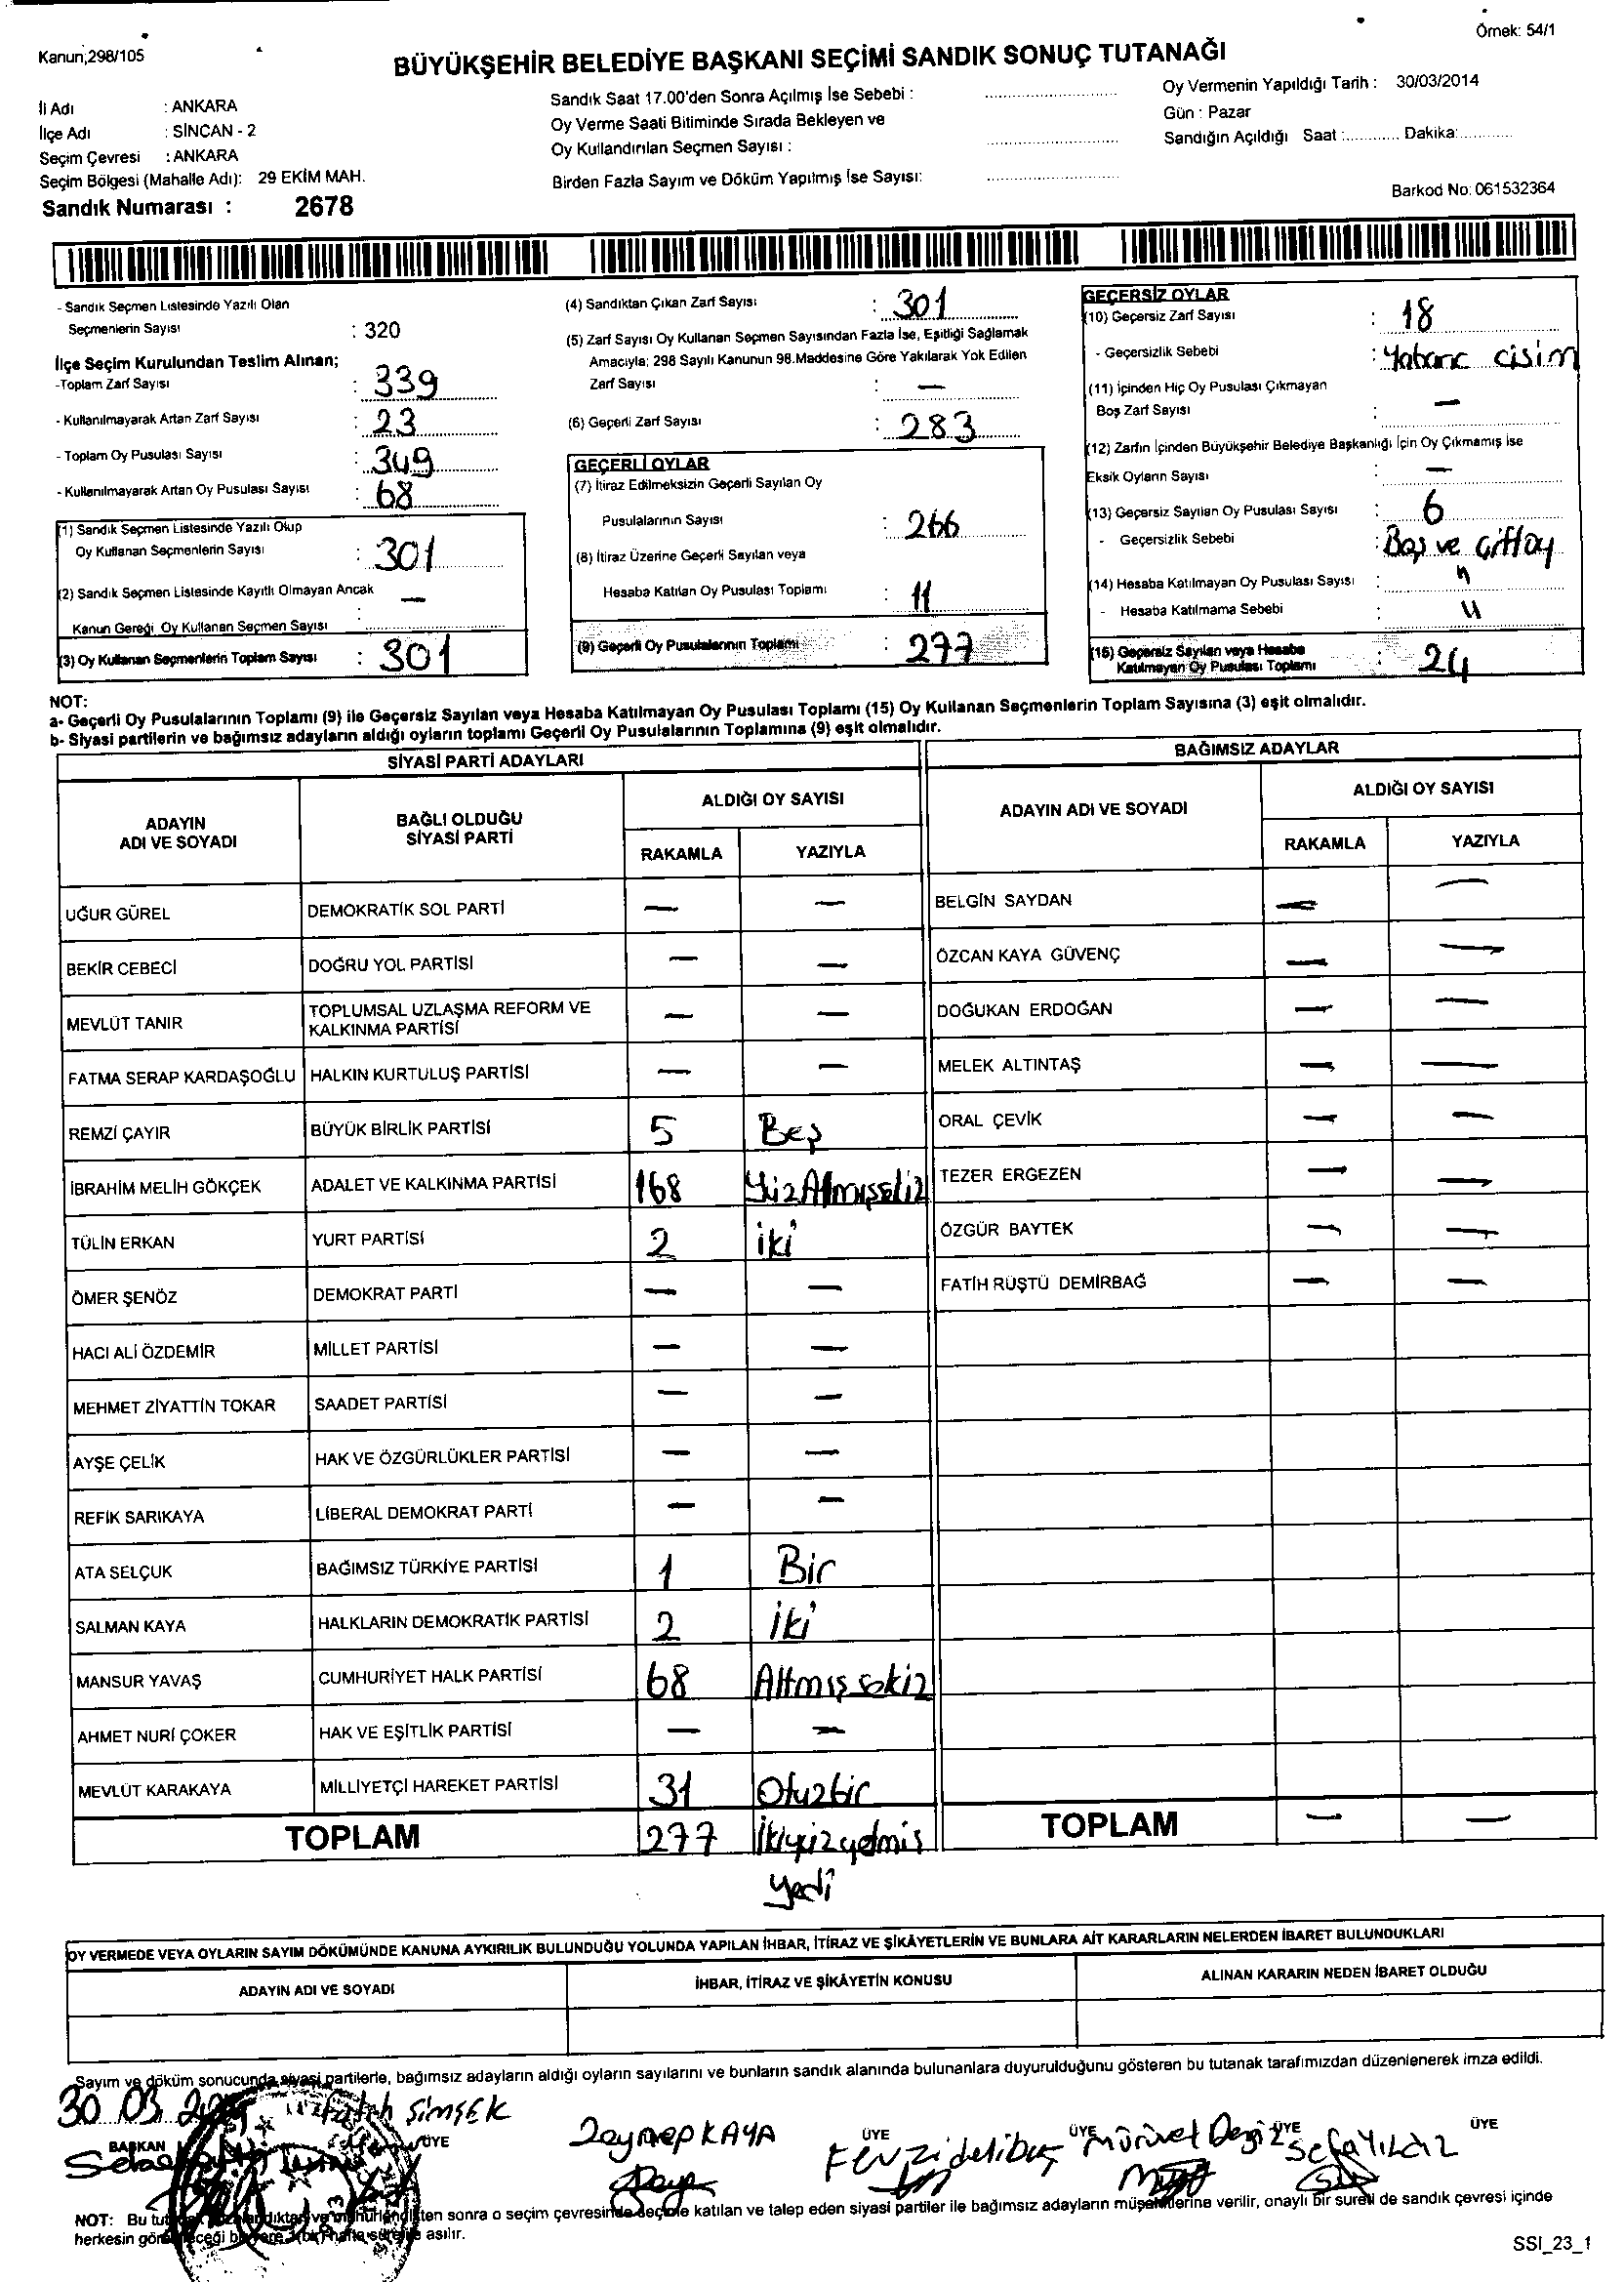 Kanun;298/105
Örnek: 54/1
BÜYÜKŞEHİR BELEDİYE BAŞKANI SEÇİMİ SANDIK SONUÇ TUTANAĞI
İl Adı : ANKARA
İlçe Adı : SİNCAN - 2
Seçim Çevresi : ANKARA
Seçim Bölgesi (Mahalle Adı): 29 EKİM MAH.
Sandık Numarası : 2678
Sandık Saat 17.00'den Sonra Açılmış İse Sebebi :
Oy Verme Saati Bitiminde Sırada Bekleyen ve
Oy Kullandırılan Seçmen Sayısı :
Birden Fazla Sayım ve Döküm Yapılmış İse Sayısı:
Oy Vermenin Yapıldığı Tarih : 30/03/2014
Gün : Pazar
Sandığın Açıldığı Saat :............ Dakika:............
Barkod No: 061532364
- Sandık Seçmen Listesinde Yazılı Olan
Seçmenlerin Sayısı : 320
İlçe Seçim Kurulundan Teslim Alınan;
-Toplam Zarf Sayısı : 339
- Kullanılmayarak Artan Zarf Sayısı : 23
- Toplam Oy Pusulası Sayısı : 349
- Kullanılmayarak Artan Oy Pusulası Sayısı : 68
(1) Sandık Seçmen Listesinde Yazılı Olup
Oy Kullanan Seçmenlerin Sayısı : 301
(2) Sandık Seçmen Listesinde Kayıtlı Olmayan Ancak
Kanun Gereği Oy Kullanan Seçmen Sayısı : —
(3) Oy Kullanan Seçmenlerin Toplam Sayısı : 301
(4) Sandıktan Çıkan Zarf Sayısı : 301
(5) Zarf Sayısı Oy Kullanan Seçmen Sayısından Fazla İse, Eşitliği Sağlamak
Amacıyla; 298 Sayılı Kanunun 98.Maddesine Göre Yakılarak Yok Edilen
Zarf Sayısı : —
(6) Geçerli Zarf Sayısı : 283
GEÇERLİ OYLAR
(7) İtiraz Edilmeksizin Geçerli Sayılan Oy
Pusulalarının Sayısı : 266
(8) İtiraz Üzerine Geçerli Sayılan veya
Hesaba Katılan Oy Pusulası Toplamı : 11
(9) Geçerli Oy Pusulalarının Toplamı : 277
GEÇERSİZ OYLAR
(10) Geçersiz Zarf Sayısı : 18
- Geçersizlik Sebebi : Yabanc cisim
(11) İçinden Hiç Oy Pusulası Çıkmayan
Boş Zarf Sayısı : —
(12) Zarfın İçinden Büyükşehir Belediye Başkanlığı İçin Oy Çıkmamış ise
Eksik Oyların Sayısı : —
(13) Geçersiz Sayılan Oy Pusulası Sayısı : 6
- Geçersizlik Sebebi : Boş ve çift oy
(14) Hesaba Katılmayan Oy Pusulası Sayısı : "
- Hesaba Katılmama Sebebi : "
(15) Geçersiz Sayılan veya Hesaba
Katılmayan Oy Pusulası Toplamı : 24
NOT:
a- Geçerli Oy Pusulalarının Toplamı (9) ile Geçersiz Sayılan veya Hesaba Katılmayan Oy Pusulası Toplamı (15) Oy Kullanan Seçmenlerin Toplam Sayısına (3) eşit olmalıdır.
b- Siyasi partilerin ve bağımsız adayların aldığı oyların toplamı Geçerli Oy Pusulalarının Toplamına (9) eşit olmalıdır.
SİYASİ PARTİ ADAYLARI
ADAYIN
ADI VE SOYADI
BAĞLI OLDUĞU
SİYASİ PARTİ
ALDIĞI OY SAYISI
RAKAMLA YAZIYLA
UĞUR GÜREL DEMOKRATİK SOL PARTİ — —
BEKİR CEBECİ DOĞRU YOL PARTİSİ — —
MEVLÜT TANIR TOPLUMSAL UZLAŞMA REFORM VE
KALKINMA PARTİSİ — —
FATMA SERAP KARDAŞOĞLU HALKIN KURTULUŞ PARTİSİ — —
REMZİ ÇAYIR BÜYÜK BİRLİK PARTİSİ 5 Beş
İBRAHİM MELİH GÖKÇEK ADALET VE KALKINMA PARTİSİ 168 YüzAtmışsekiz
TÜLİN ERKAN YURT PARTİSİ 2 iki
ÖMER ŞENÖZ DEMOKRAT PARTİ — —
HACI ALİ ÖZDEMİR MİLLET PARTİSİ — —
MEHMET ZİYATTİN TOKAR SAADET PARTİSİ — —
AYŞE ÇELİK HAK VE ÖZGÜRLÜKLER PARTİSİ — —
REFİK SARIKAYA LİBERAL DEMOKRAT PARTİ — —
ATA SELÇUK BAĞIMSIZ TÜRKİYE PARTİSİ 1 Bir
SALMAN KAYA HALKLARIN DEMOKRATİK PARTİSİ 2 iki
MANSUR YAVAŞ CUMHURİYET HALK PARTİSİ 68 Altmış sekiz
AHMET NURİ ÇOKER HAK VE EŞİTLİK PARTİSİ — —
MEVLÜT KARAKAYA MİLLİYETÇİ HAREKET PARTİSİ 31 Otuzbir
TOPLAM 277 İkiyüzyetmiş
yedi
BAĞIMSIZ ADAYLAR
ADAYIN ADI VE SOYADI
ALDIĞI OY SAYISI
RAKAMLA YAZIYLA
BELGİN SAYDAN — —
ÖZCAN KAYA GÜVENÇ — —
DOĞUKAN ERDOĞAN — —
MELEK ALTINTAŞ — —
ORAL ÇEVİK — —
TEZER ERGEZEN — —
ÖZGÜR BAYTEK — —
FATİH RÜŞTÜ DEMİRBAĞ — —
TOPLAM — —
OY VERMEDE VEYA OYLARIN SAYIM DÖKÜMÜNDE KANUNA AYKIRILIK BULUNDUĞU YOLUNDA YAPILAN İHBAR, İTİRAZ VE ŞİKÂYETLERİN VE BUNLARA AİT KARARLARIN NELERDEN İBARET BULUNDUKLARI
ADAYIN ADI VE SOYADI İHBAR, İTİRAZ VE ŞİKÂYETİN KONUSU ALINAN KARARIN NEDEN İBARET OLDUĞU
Sayım ve döküm sonucunda siyasi partilerle, bağımsız adayların aldığı oyların sayılarını ve bunların sandık alanında bulunanlara duyurulduğunu gösteren bu tutanak tarafımızdan düzenlenerek imza edildi.
30 03 Fatih ŞİMŞEK Zeynep KAYA Fevzi delibaş Mürüvet Deniz Sefa YILDIZ
BAŞKAN ÜYE ÜYE ÜYE ÜYE ÜYE
NOT: Bu ten sonra o seçim çevresinde seçime katılan ve talep eden siyasi partiler ile bağımsız adayların müşahitlerine verilir, onaylı bir sureti de sandık çevresi içinde
herkesin asılır.
SSI_23_1